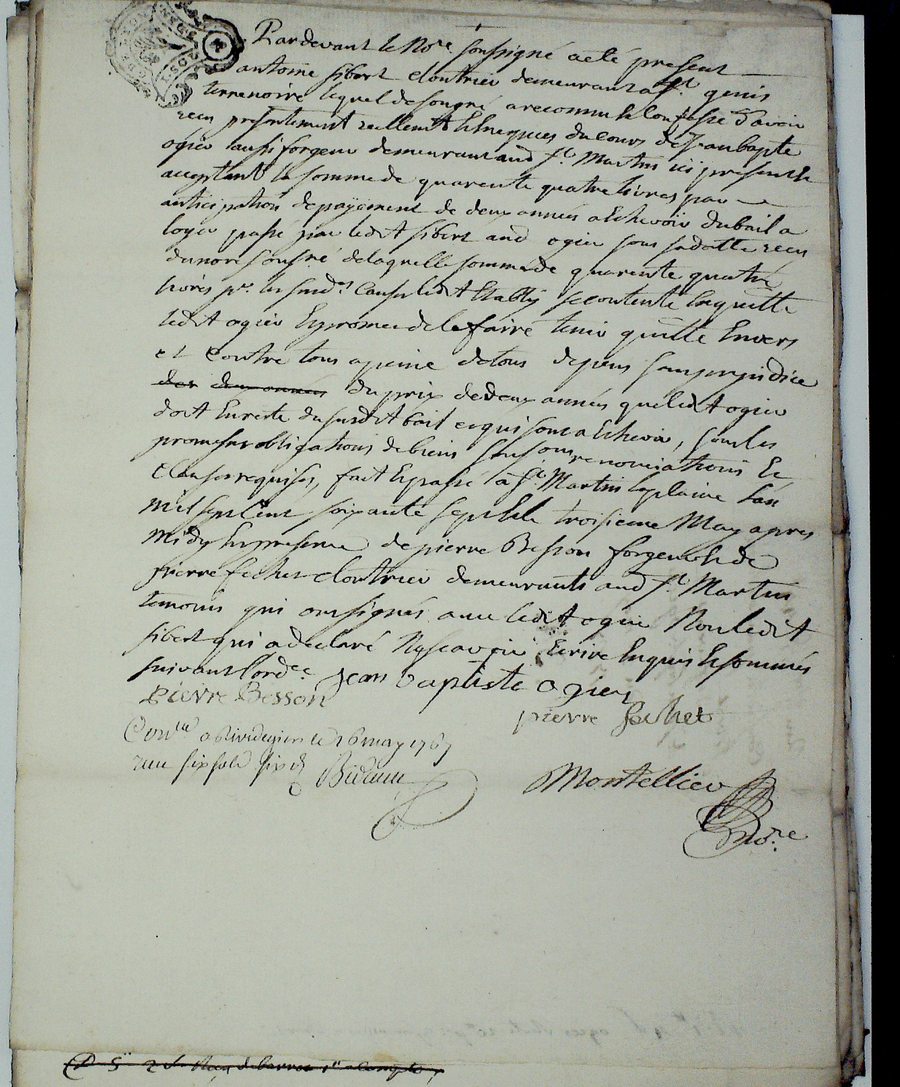 Pardevant le No.re soussigné a eté present
antoine sibert cloutrier demeurant a S.t genis
terrenoire lequel de son gré a reconnu et confessé d'avoir
recu presentement reellement des du cours de Jean bapte
ogier aussi forgeur demeurant aud S.t Martin ici present et
acceptant la somme de quarente quatre livres par
anticipation de payement de deux années a Echevoir du bail a
loyer passé par ledit sibert aud ogier sous sa datte recu
du nore sousné de laquelle somme de quarente quatre
livres p.r les susd.s Causes ledit sibert se contente En quitte
ledit ogier Et promet de le faire tenir quitte Envers
et Contre tous a peine de tous depens sans prejudice
des deux années du prix de deux années que ledit ogier
doit En reste du susdit bail et qui sont a Echevoir, sous les
promesses obligations de biens renonciations Et
Clauses requises, fait Et passé a S.t Martin la plaine L'an
mil sept Cent soixante sept Et le troisieme May apres
Midy En presence de pierre Besson forgeur Et de
pierre fechet cloutrier demeurants aud S.t Martin
temoins qui ont signés avec ledit ogier Non ledit
sibert qui a declaré Ny scavoir Ecrire Enquis Et sommés
suivant l'ord.ce Jean baptiste ogier
pierre Besson
pierre fechet
Con.lé a Rivedegier le 16 may 1767
recu six sols six d.
Montellier
no.re